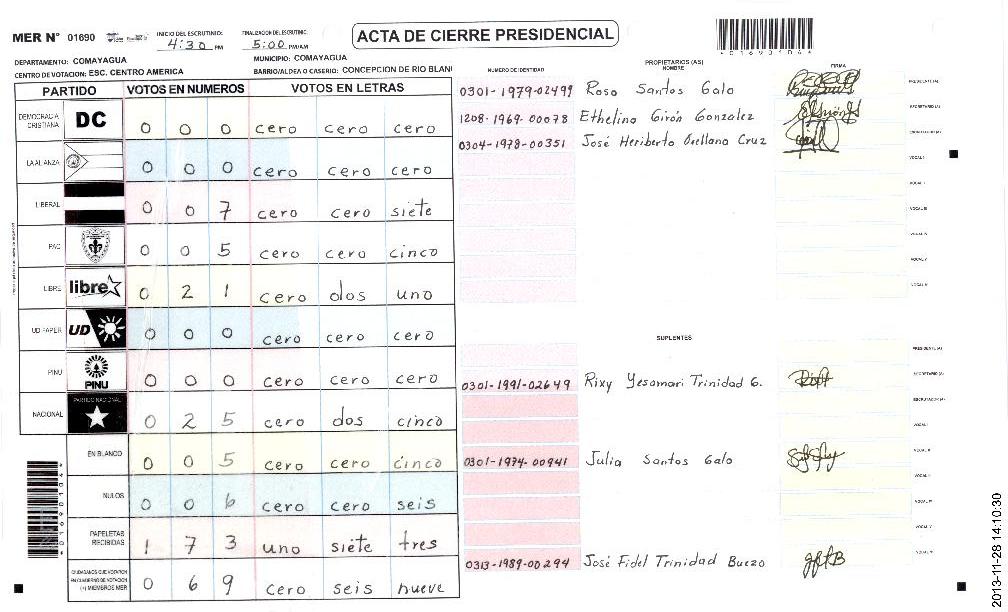 MER N° 01690
INICIO DEL ESCRUTINIO:
4:30 PM
FINALIZACION DEL ESCRUTINIO:
5:00 PM/AM
ACTA DE CIERRE PRESIDENCIAL
DEPARTAMENTO: COMAYAGUA
MUNICIPIO: COMAYAGUA
CENTRO DE VOTACION: ESC. CENTRO AMERICA
BARRIO/ALDEA O CASERIO: CONCEPCION DE RIO BLAN
PARTIDO VOTOS EN NUMEROS VOTOS EN LETRAS
DEMOCRACIA CRISTIANA DC 0 0 0 cero cero cero
LA ALIANZA 0 0 0 cero cero cero
LIBERAL 0 0 7 cero cero siete
PAC 0 0 5 cero cero cinco
LIBRE libre 0 2 1 cero dos uno
UD FAPER UD 0 0 0 cero cero cero
PINU PINU 0 0 0 cero cero cero
NACIONAL PARTIDO NACIONAL 0 2 5 cero dos cinco
EN BLANCO 0 0 5 cero cero cinco
NULOS 0 0 6 cero cero seis
PAPELETAS RECIBIDAS 1 7 3 uno siete tres
CIUDADANOS QUE VOTARON EN CUADERNO DE VOTACION (+) MIEMBROS MER 0 6 9 cero seis nueve
PROPIETARIOS (AS)
NUMERO DE IDENTIDAD NOMBRE FIRMA
0301-1979-02499 Rosa Santos Galo PRESIDENTE (A)
1208-1969-00078 Ethelina Girón Gonzalez SECRETARIO (A)
0304-1978-00351 José Heriberto Orellana Cruz ESCRUTADOR (A)
VOCAL I
VOCAL II
VOCAL III
VOCAL IV
VOCAL V
VOCAL VI
SUPLENTES
PRESIDENTE (A)
0301-1991-02649 Rixy Yesamari Trinidad G. SECRETARIO (A)
ESCRUTADOR (A)
VOCAL I
0301-1974-00941 Julia Santos Galo VOCAL II
VOCAL III
VOCAL IV
VOCAL V
0313-1989-00294 José Fidel Trinidad Buezo VOCAL VI
2013-11-28 14:10:30